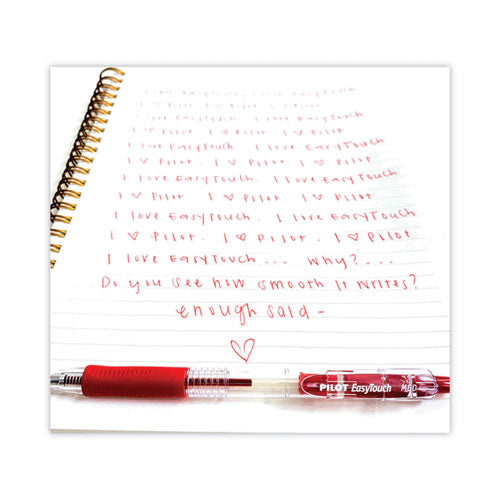 I love EasyTouch. I love EasyTouch
I ♡ Pilot. I ♡ Pilot. I ♡ Pilot
I love EasyTouch. I love EasyTouch.
I ♡ Pilot. I ♡ Pilot. I ♡ Pilot
I love EasyTouch. I love EasyTouch
I ♡ Pilot. I ♡ Pilot. I ♡ Pilot
I love EasyTouch. I love EasyTouch
I ♡ Pilot. I ♡ Pilot. I ♡ Pilot
I love EasyTouch. I love EasyTouch
I ♡ Pilot. I ♡ Pilot. I ♡ Pilot
I love EasyTouch... Why?...
Do you see how smooth it writes?
enough said -
♡
PILOT EasyTouch MED